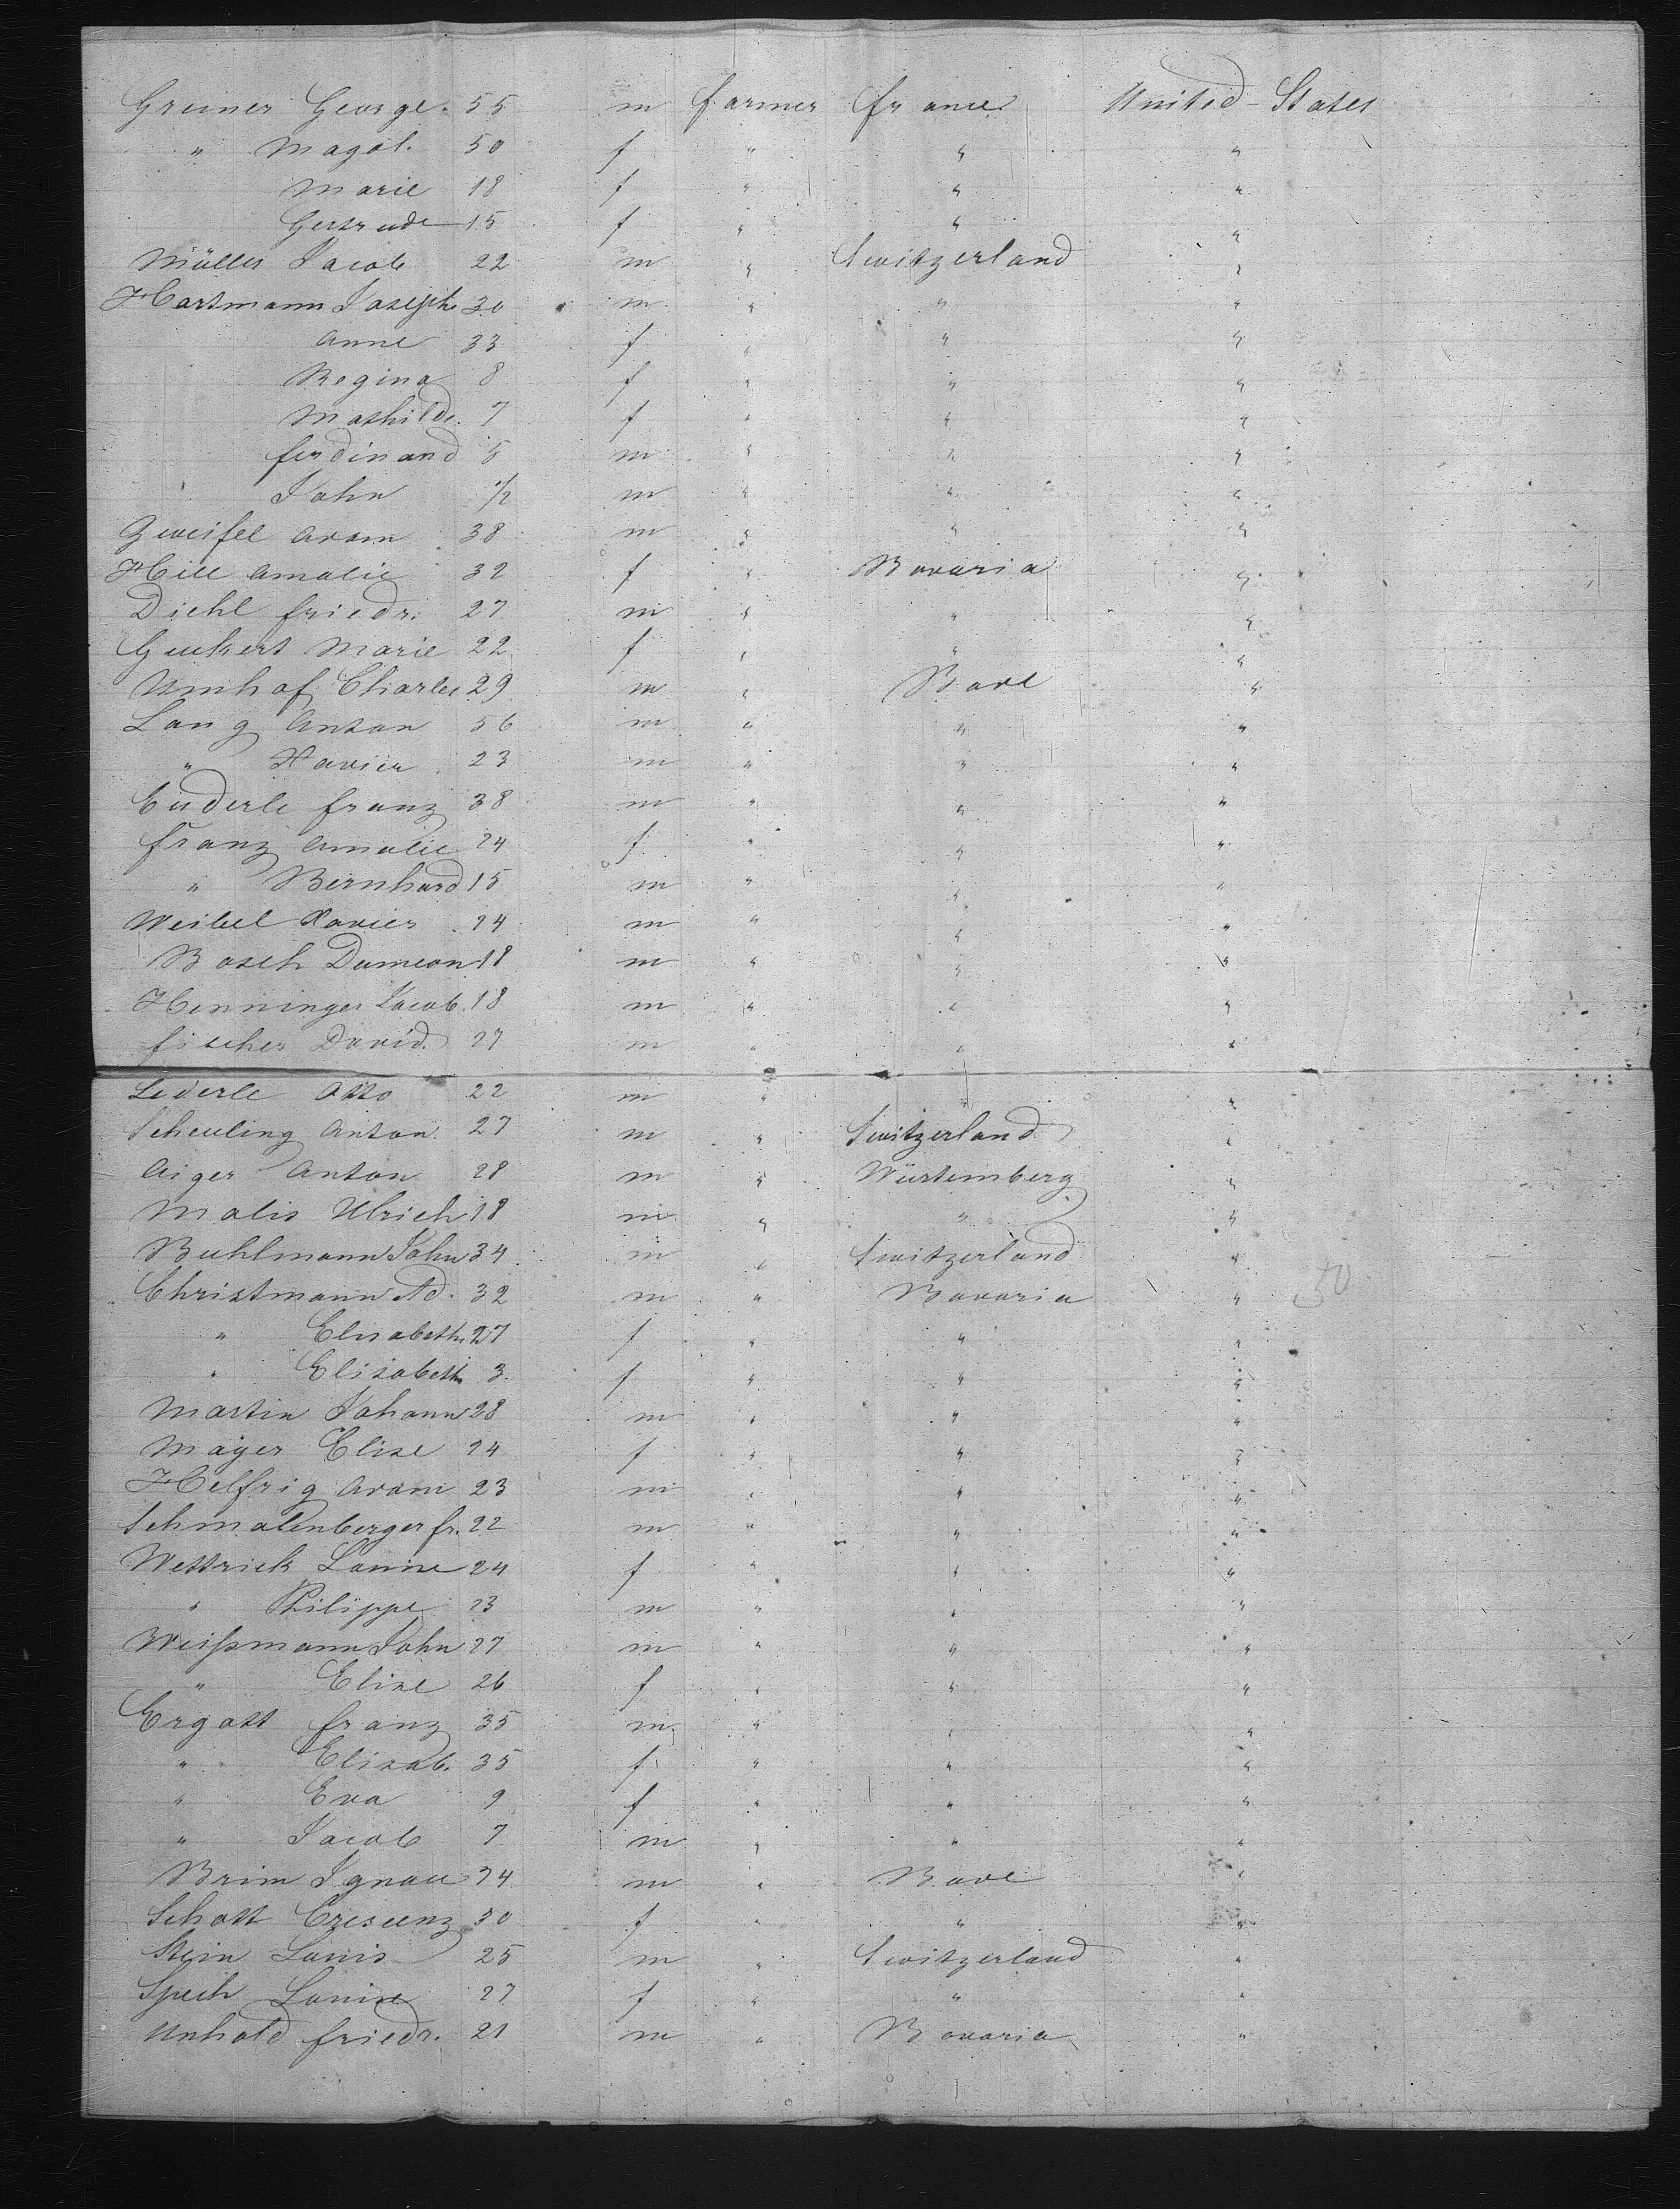 Greiner George 55 m farmer france United-States
" Magdl. 50 f " " "
Marie 18 f " " "
Gertrude 15 f " " "
Müller Jacob 22 m " Switzerland "
Hartmann Joseph 30 m " " "
Anne 33 f " " "
Regina 8 f " " "
Mathilde 7 f " " "
ferdinand 5 m " " "
John 1/2 m " " "
Zweifel Adam 38 m " " "
Hill Amalie 32 f " Bavaria "
Diehl friedr. 27 m " " "
Guckert Marie 22 f " " "
Umhof Charles 29 m " Bade "
Lang Anton 56 m " " "
" Xavier 23 m " " "
Enderle franz 38 m " " "
franz Amalie 24 f " " "
" Bernhard 15 m " " "
Weibel Xavier 24 m " " "
Bosch Dameon 18 m " " "
Henninger Jacob 18 m " " "
fischer David 27 m " " "
Lederle Otto 22 m " " "
Scheuling Anton 27 m " Switzerland "
Aiger Anton 28 m " Würtemberg "
Malis Ulrich 18 m " " "
Buhlmann John 34 m " Switzerland "
Christmann Ad. 32 m " Bavaria " 50
" Elisabeth 27 f " " "
" Elisabeth 3 f " " "
Martin Johann 28 m " " "
Mayer Elise 24 f " " "
Helfrig Adam 23 m " " "
Schmalenberger fr. 22 m " " "
Wettrich Louise 24 f " " "
" Philippe 23 m " " "
Weißmann John 27 m " " "
" Elise 26 f " " "
Ergott franz 35 m " " "
" Elisab. 35 f " " "
" Eva 9 f " " "
" Jacob 7 m " " "
Brim Ignace 24 m " Bade "
Schott Crescenz 30 f " " "
Stein Louis 25 m " Switzerland "
Spech Louise 27 f " " "
Unhold friedr. 21 m " Bavaria "